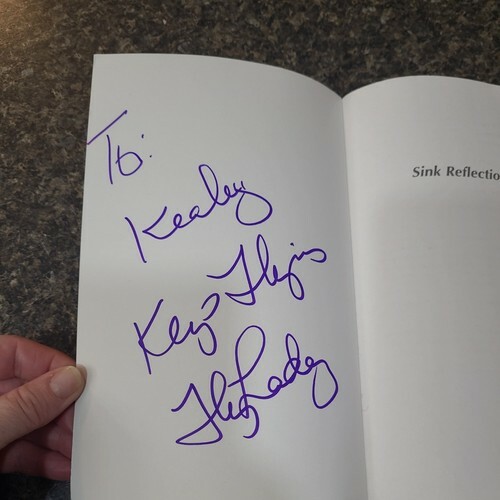 To:
Kealey
Keep Flying
FlyLady
Sink Reflectio